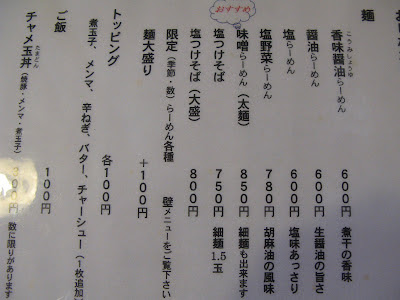 麺
こうみしょうゆ
香味醤油らーめん 600円 煮干の香味
醤油らーめん 600円 生醤油の旨さ
塩らーめん 600円 塩味あっさり
塩野菜らーめん 780円 胡麻油の風味
おすすめ
味噌らーめん（太麺） 850円 細麺も出来ます
塩つけそば 750円 細麺1.5玉
塩つけそば（大盛） 800円
限定（季節・数）らーめん各種 壁メニューをご覧下さい
麺大盛り +100円
トッピング 各100円
煮玉子、メンマ、辛ねぎ、バター、チャーシュー（1枚追加
ご飯 100円
たまどん
チャメ玉丼（焼豚・メンマ・煮玉子） 300円 数に限りがあります